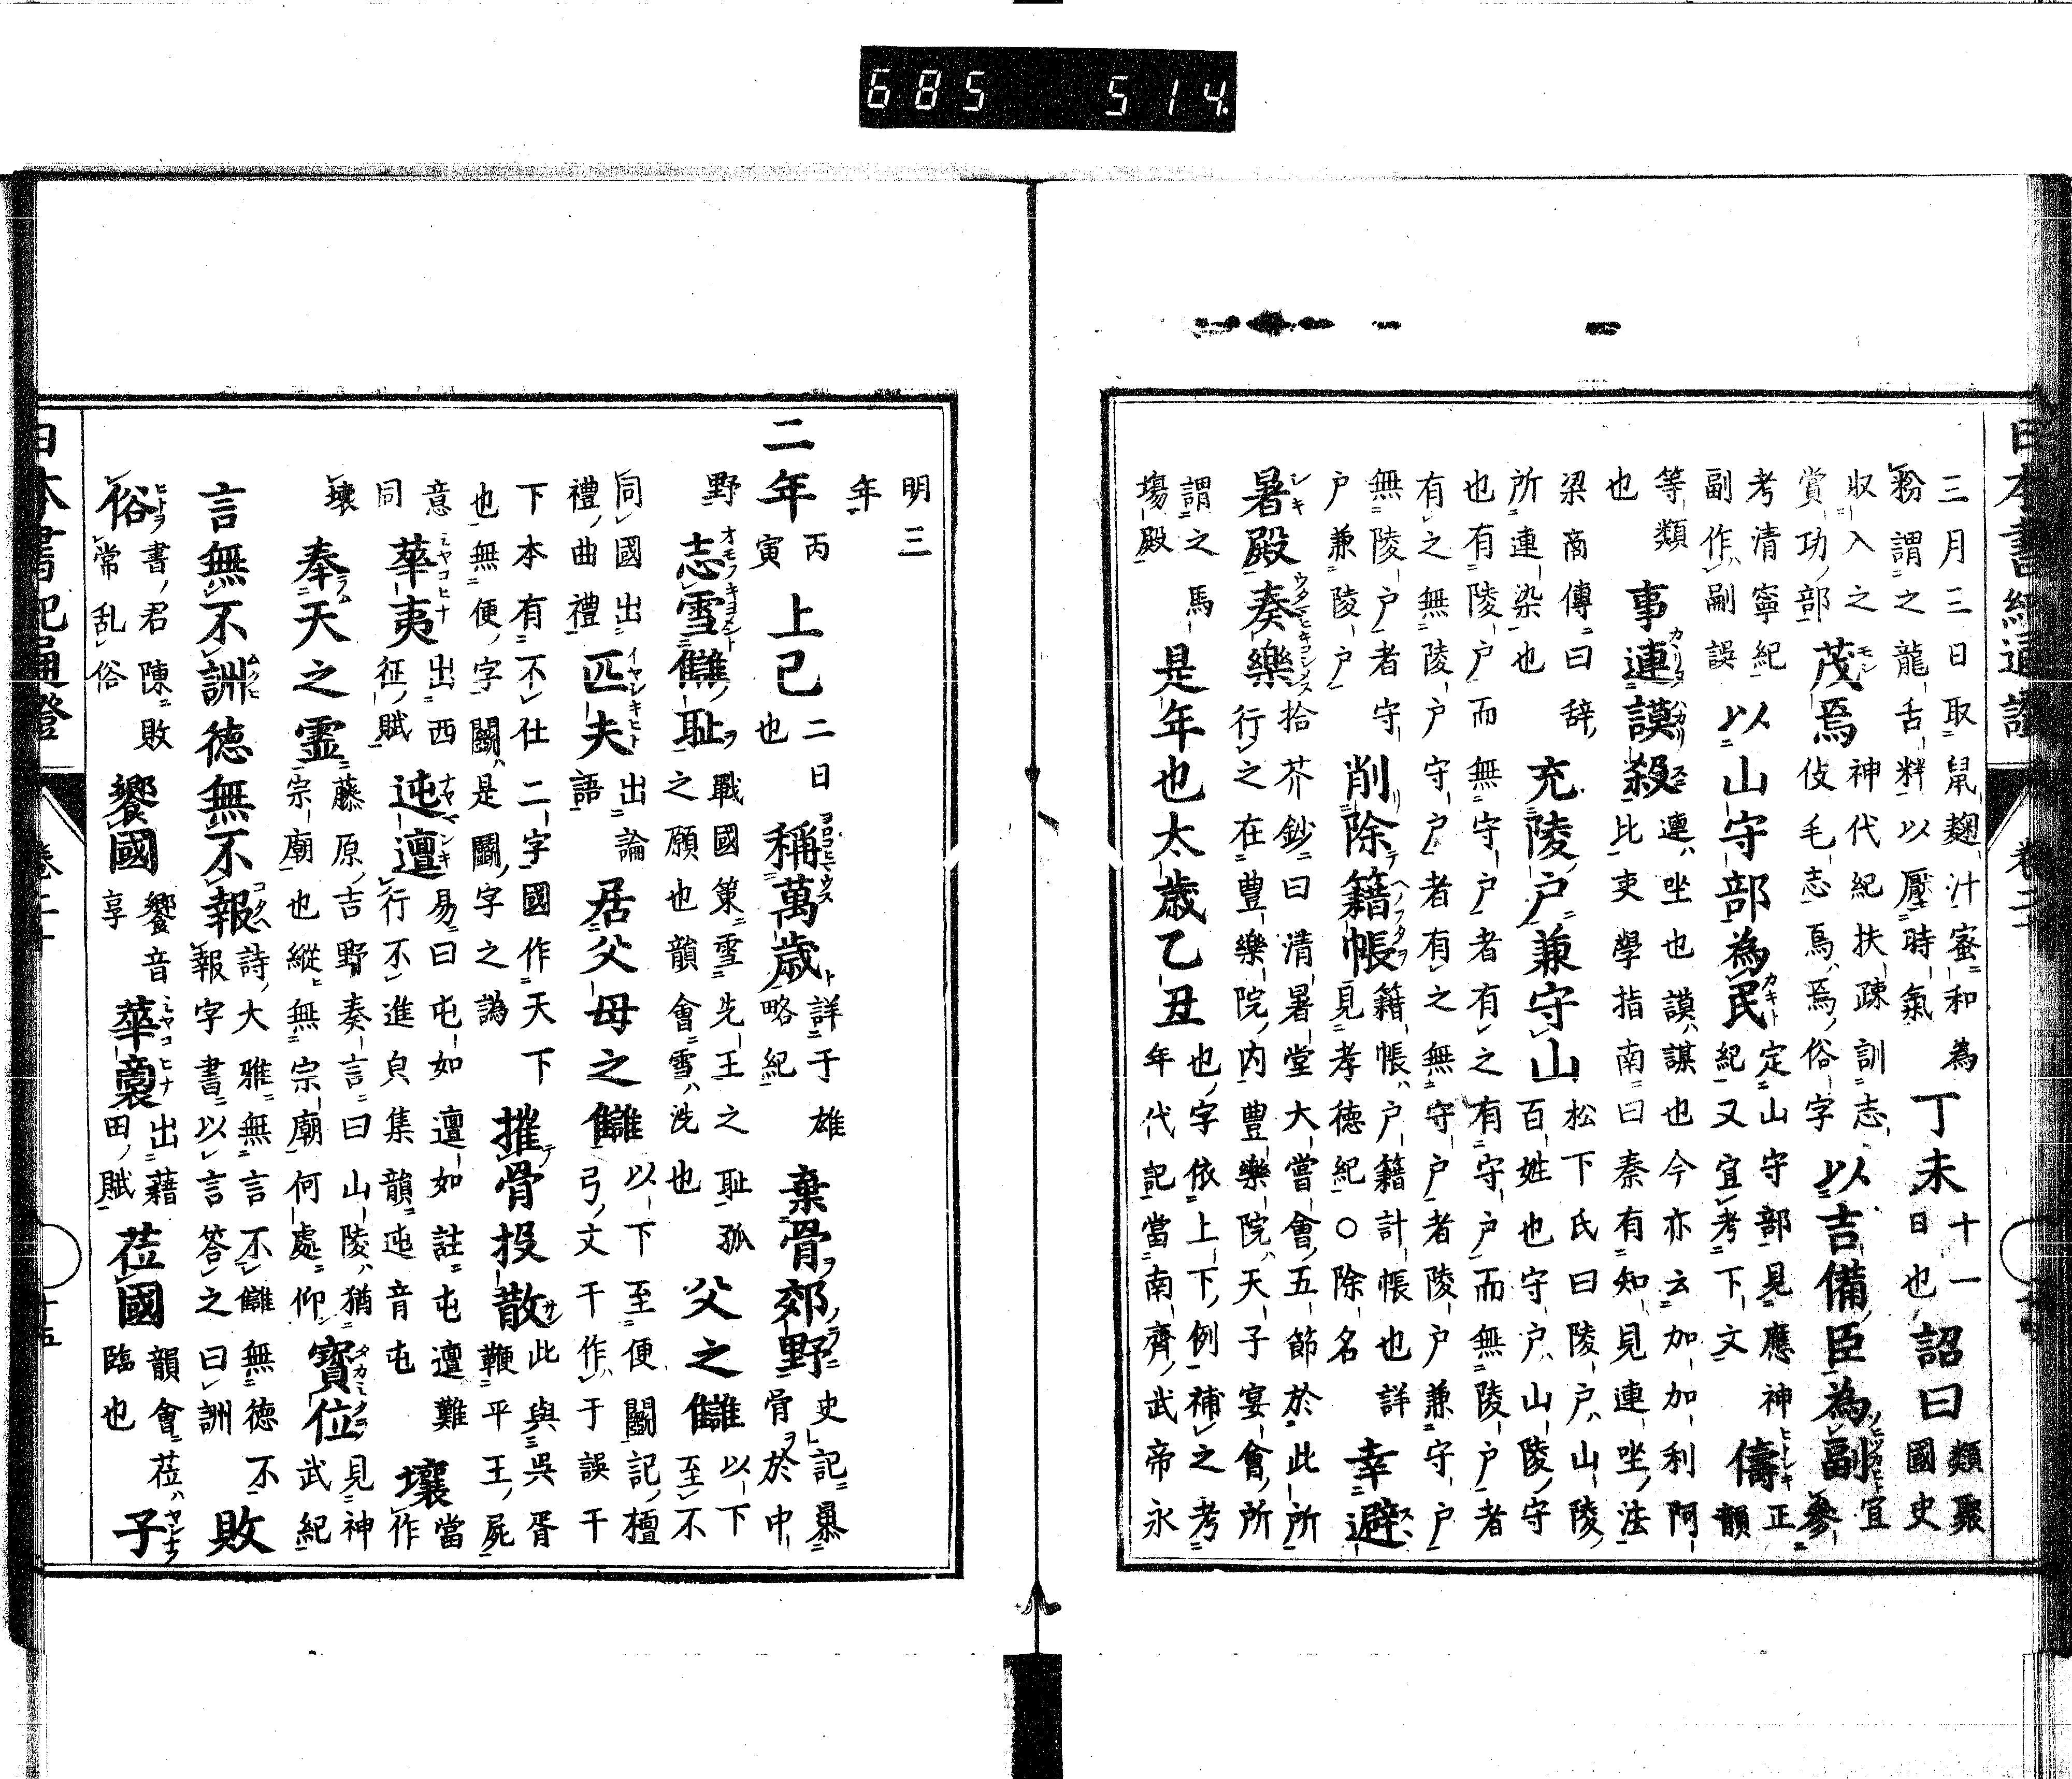 日本書紀通證 卷二十
三月三日取鼠麹汁蜜和為粉謂之龍舌䉽以壓時氣 丁未 十一日也 詔曰 類聚國史
收入之賞功部 茂焉 神代紀扶疎訓志伎毛志焉焉俗字 以吉備臣為副 宜參
考清寧紀副作嗣誤 以山守部為民 定山守部見應神紀又宜考下文 儔 正韻
等類也 事連謨殺 連坐也謨謀也今亦云加加利阿比吏學指南曰秦有知見連坐法
梁商傳曰辞所連染也 充陵戸兼守山 松下氏曰陵戸山陵百姓也守戸山陵守
也有陵戸而無守戸者有之有守戸而無陵戸者有之無陵戸守戸者有之無守戸者陵戸兼守戸
無陵戸者守戸兼陵戸 削除籍帳 籍帳戸籍計帳也詳見孝徳紀○除名 幸避
暑殿奏樂 拾芥鈔曰清暑堂大嘗會五節於此所行之在豊樂院内豊樂院天子宴會所
謂之馬塲殿 是年也太歳乙丑 也字依上下例補之考年代記當南齊武帝永
明三年
二年 丙寅 上巳 二日也 稱萬歳 詳于雄略紀 棄骨郊野 史記暴骨於中
野 志雪讎恥 戰國策雪先王之恥之願也韻會雪洗也 孤 父之讎 以下至不
同國出禮曲禮 匹夫 出論語 居父母之讎 以下至便鬭記檀弓文干作于誤干
下本有不仕二字國作天下也無便字鬭是鬭字之譌 摧骨投散 此與呉胥鞭平王屍
意同 華夷 出西征賦 迍邅 易曰屯如邅如註屯邅難行不進皃集韻迍音屯 壤 當作
壊 奉天之霊 藤原吉野奏言曰山陵猶宗廟也縱無宗廟何處仰 寳位 見神武紀
言無不詶徳無不報 詩大雅無言不讎無徳不報字書以言答之曰詶 敗
俗 書君陳敗常乱俗 饗國 饗音享 華裔 出藉田賦 莅國 韻會莅臨也 子
日本書紀通證 卷二十 十五
685 514